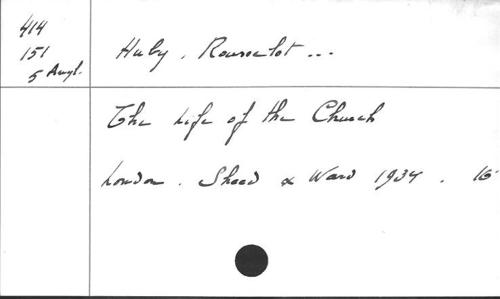 414
151
5 Angl.
Huby, Rousselot ...
The Life of the Church
London. Sheed & Ward 1934. 16